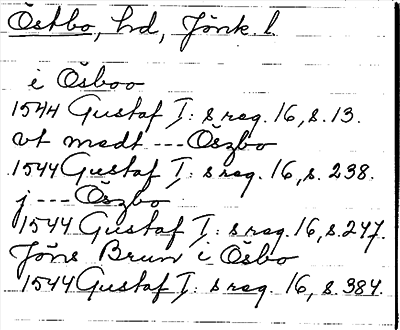 Östbo, hd, Jönk. l.
i Ösboo
1544 Gustaf I: s reg. 16, s. 13.
vt medt --- Öszbo
1544 Gustaf I: s reg. 16, s. 238.
j --- Öszbo
1544 Gustaf I: s reg. 16, s. 247.
Jöns Brun i Ösbo
1544 Gustaf I: s reg. 16, s. 384.